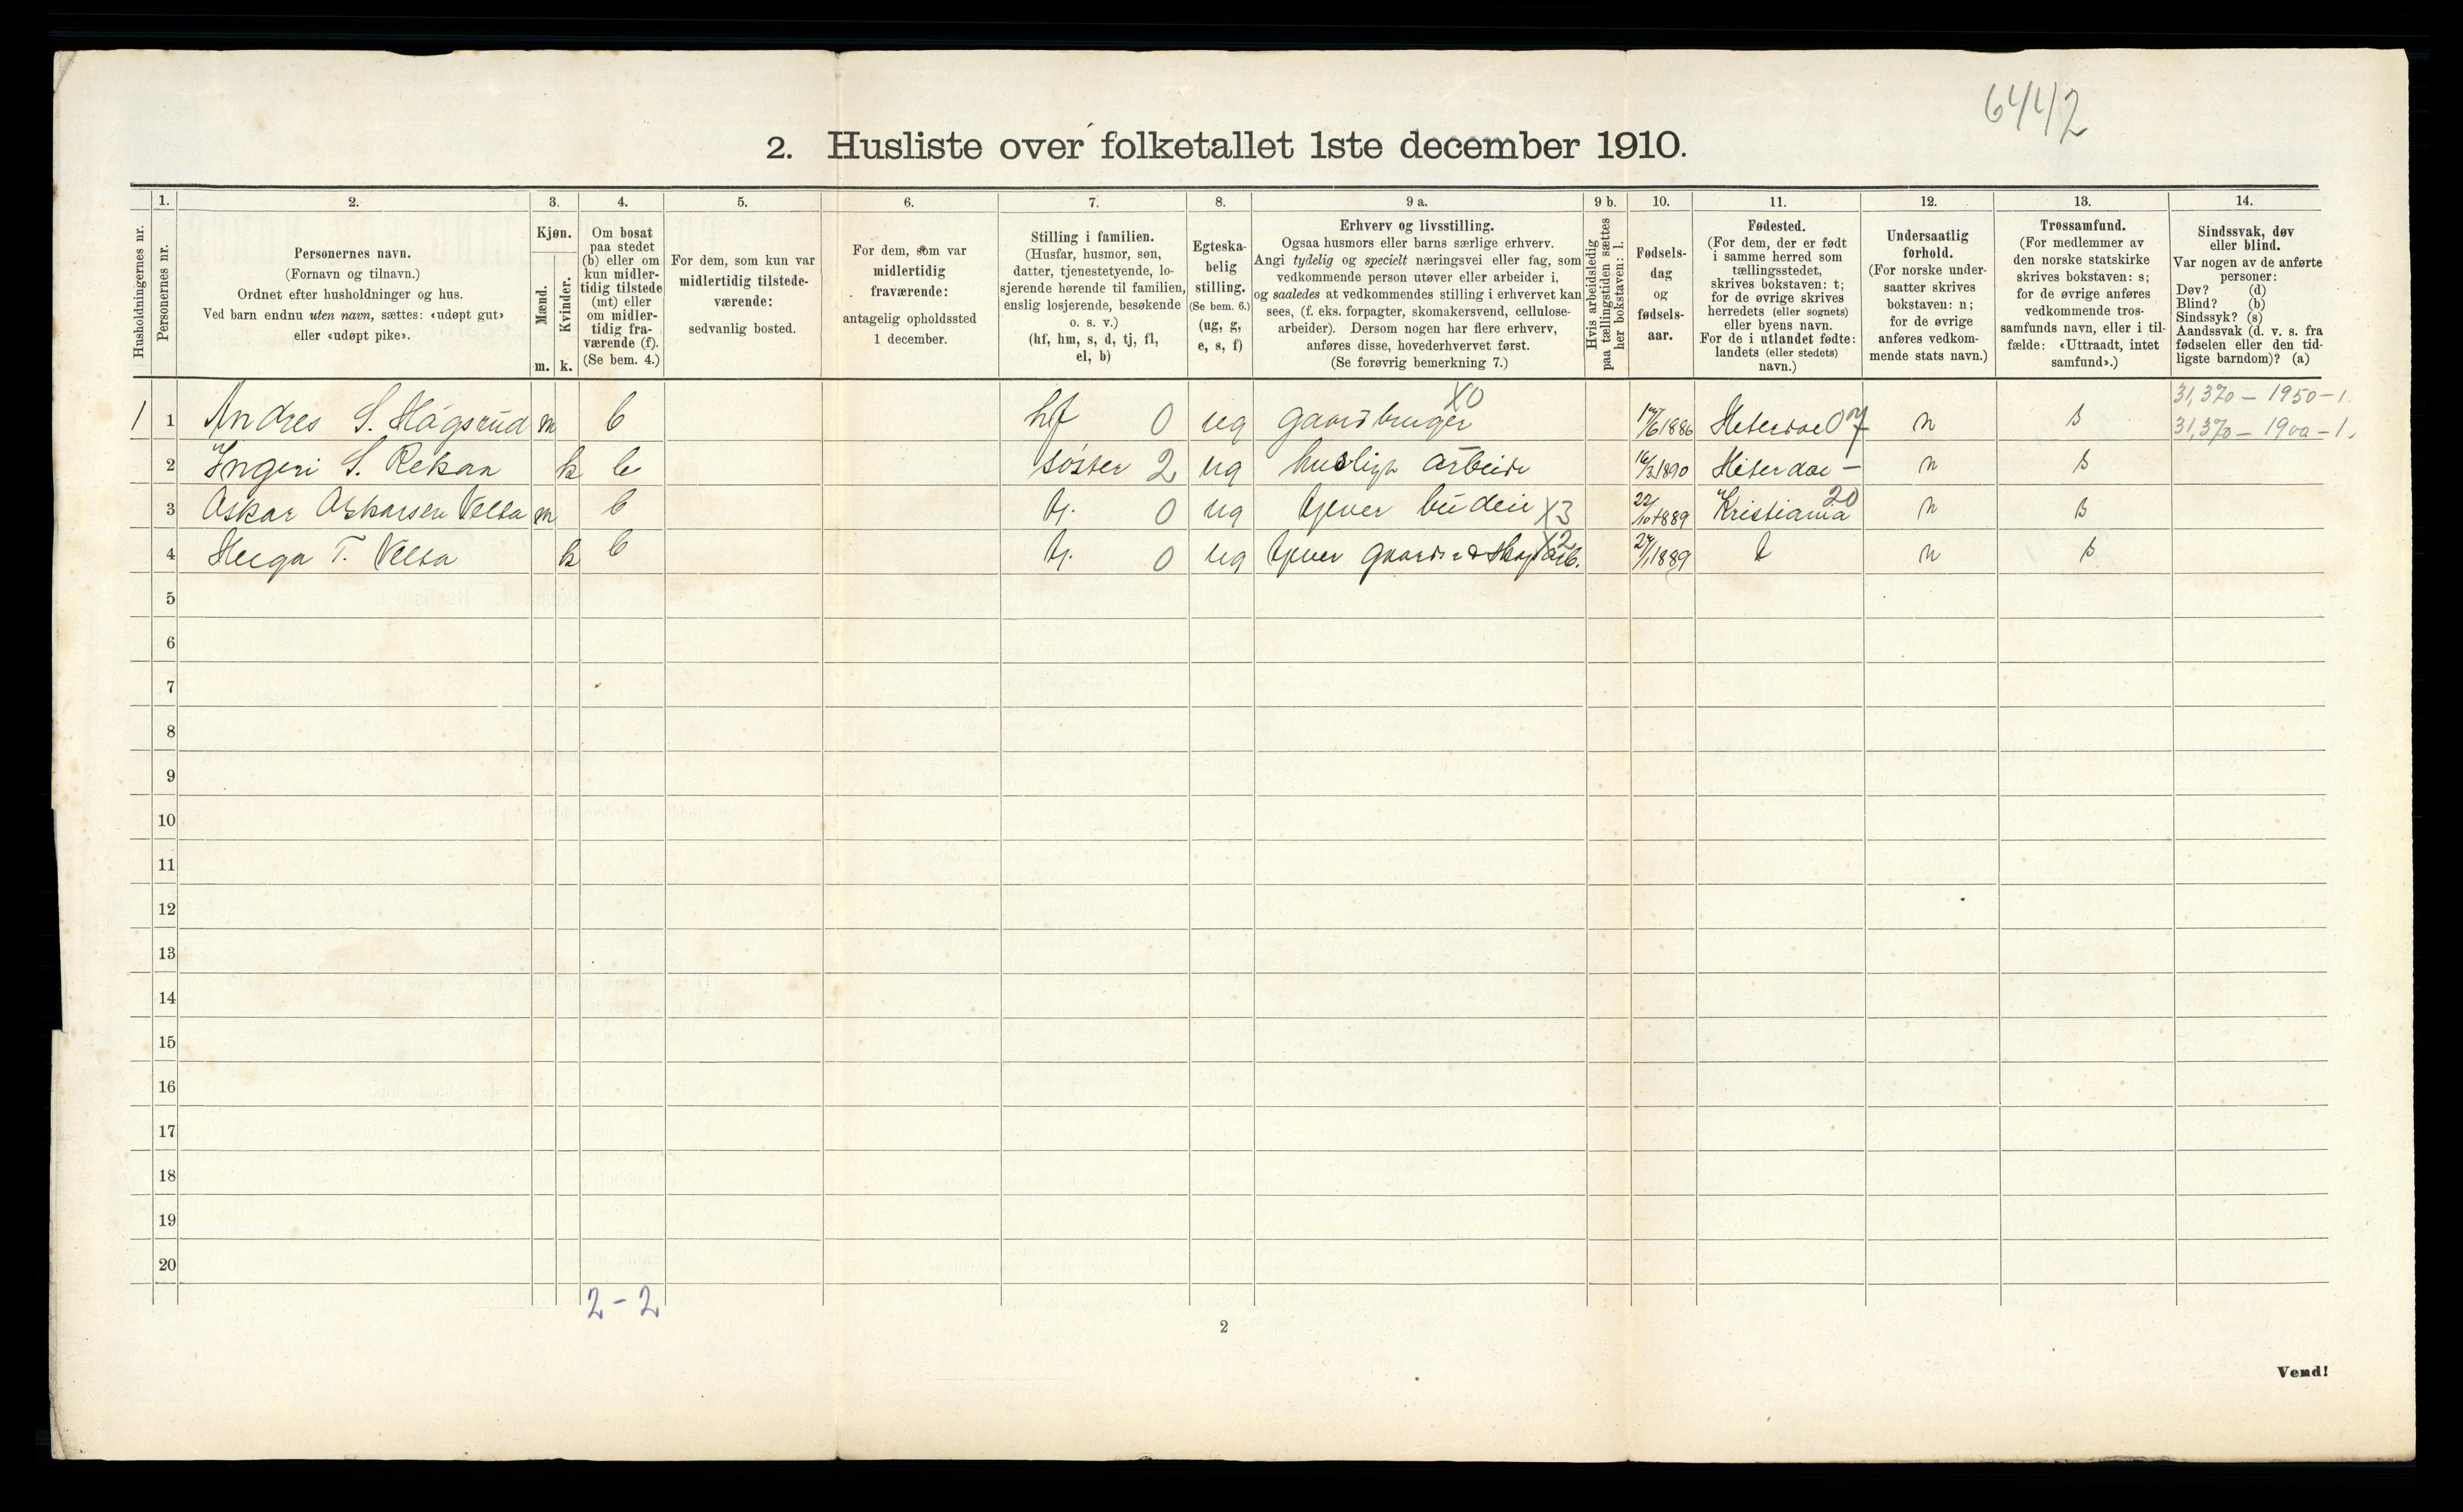 6442
2. Husliste over folketallet 1ste december 1910.
Husholdningernes nr.
1.
Personernes nr.
2.
Personernes navn.
(Fornavn og tilnavn.)
Ordnet efter husholdninger og hus.
Ved barn endnu uten navn, sættes: «udøpt gut»
eller «udøpt pike».
3.
Kjøn.
Mænd.
m.
Kvinder.
k.
4.
Om bosat
paa stedet
(b) eller om
kun midler-
tidig tilstede
(mt) eller
om midler-
tidig fra-
værende (f).
(Se bem. 4.)
5.
For dem, som kun var
midlertidig tilstede-
værende:
sedvanlig bosted.
6.
For dem, som var
midlertidig
fraværende:
antagelig opholdssted
1 december.
7.
Stilling i familien.
(Husfar, husmor, søn,
datter, tjenestetyende, lo-
sjerende hørende til familien,
enslig losjerende, besøkende
o. s. v.)
(hf, hm, s, d, tj, fl,
el, b)
8.
Egteska-
belig
stilling.
(Se bem. 6.)
(ug, g,
e, s, f)
9 a.
Erhverv og livsstilling.
Ogsaa husmors eller barns særlige erhverv.
Angi tydelig og specielt næringsvei eller fag, som
vedkommende person utøver eller arbeider i,
og saaledes at vedkommendes stilling i erhvervet kan
sees, (f. eks. forpagter, skomakersvend, cellulose-
arbeider). Dersom nogen har flere erhverv,
anføres disse, hovederhvervet først.
(Se forøvrig bemerkning 7.)
9 b.
Hvis arbeidsledig
paa tællingstiden sættes
her bokstaven: l.
10.
Fødsels-
dag
og
fødsels-
aar.
11.
Fødested.
(For dem, der er født
i samme herred som
tællingsstedet,
skrives bokstaven: t;
for de øvrige skrives
herredets (eller sognets)
eller byens navn.
For de i utlandet fødte:
landets (eller stedets)
navn.)
12.
Undersaatlig
forhold.
(For norske under-
saatter skrives
bokstaven: n;
for de øvrige
anføres vedkom-
mende stats navn.)
13.
Trossamfund.
(For medlemmer av
den norske statskirke
skrives bokstaven: s;
for de øvrige anføres
vedkommende tros-
samfunds navn, eller i til-
fælde: «Uttraadt, intet
samfund».)
14.
Sindssvak, døv
eller blind.
Var nogen av de anførte
personer:
Døv? (d)
Blind? (b)
Sindssyk? (s)
Aandssvak (d. v. s. fra
fødselen eller den tid-
ligste barndom)? (a)
31,370 - 1950 - 1.
1 1 Andres S. Hågsrud m b hf 0 ug gaardbruger X0 17/6 1886 Heterdal 07 n s 31,370 - 1900 - 1.
2 Ingeri S. Rekaa k b søster 2 ug husligt arbeide 16/3 1890 Hiterdal - n s
3 Oskar Oskarsen Velta m b tj. 0 ug tjener budeie X3 22/10 1889 Kristiania 20 n s
4 Helga T. Velta k b tj. 0 ug tjener gaards & skogsarb. X2 1889 t n s
5
6
7
8
9
10
11
12
13
14
15
16
17
18
19
20
2 - 2
2
Vend!